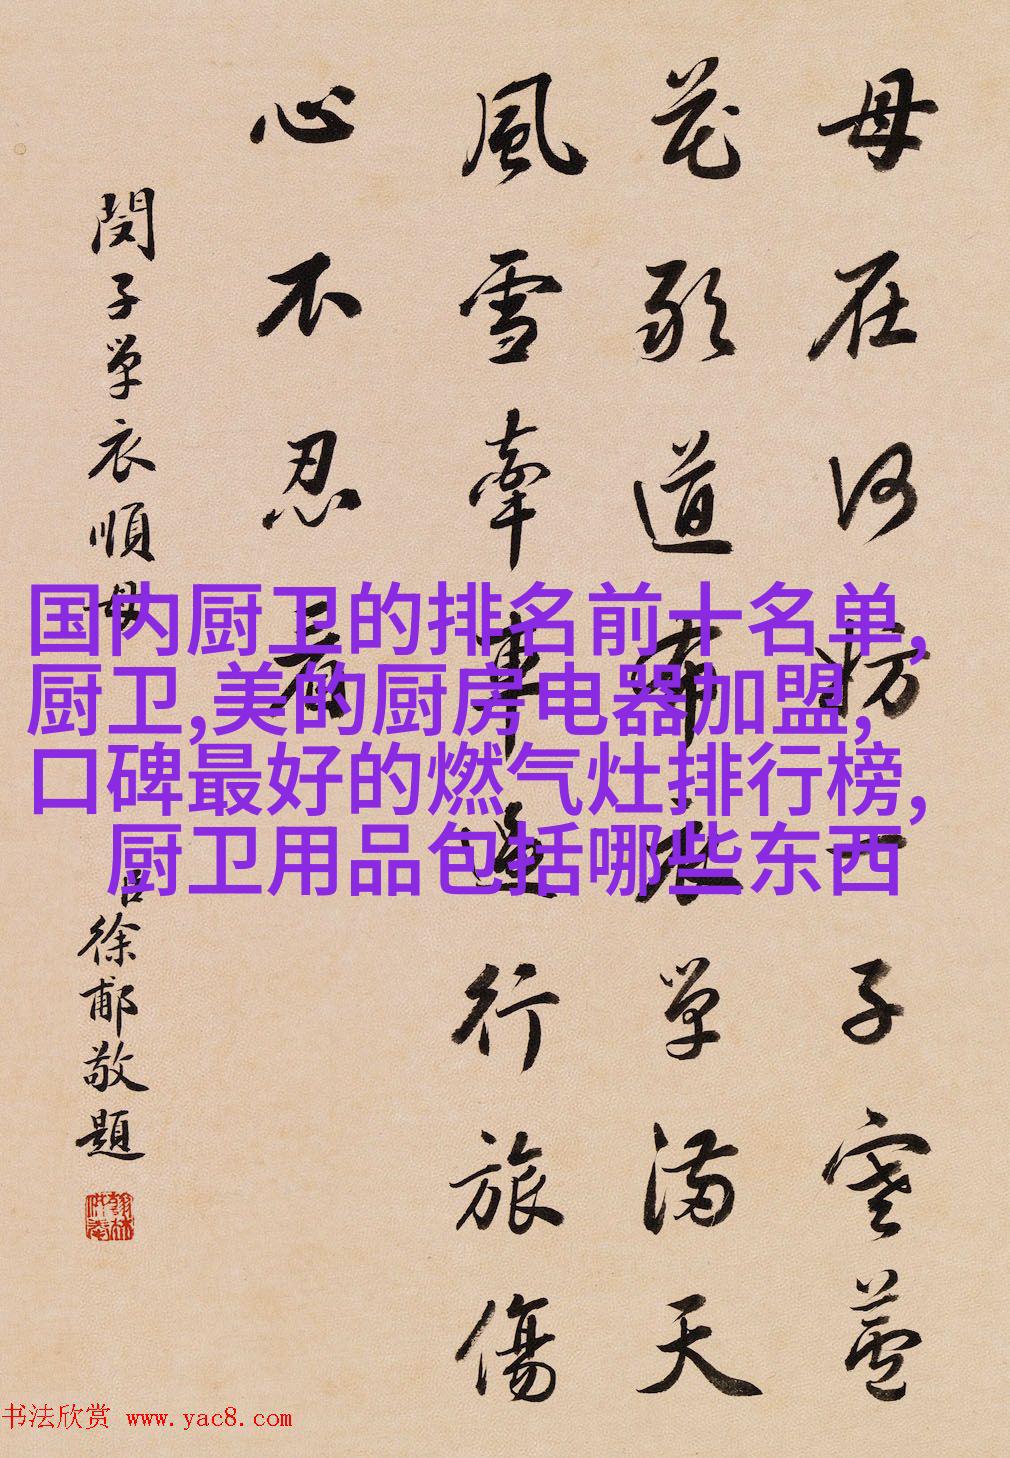 母在何妨一子寒蘆
花敢道布衣單滿天
風雪牽車過行旅傷
心不忍看
閔子單衣順母
呂徐郙敬題
国内厨卫的排名前十名单,
厨卫,美的厨房电器加盟,
口碑最好的燃气灶排行榜,
厨卫用品包括哪些东西
书法欣赏 www.yac8.com